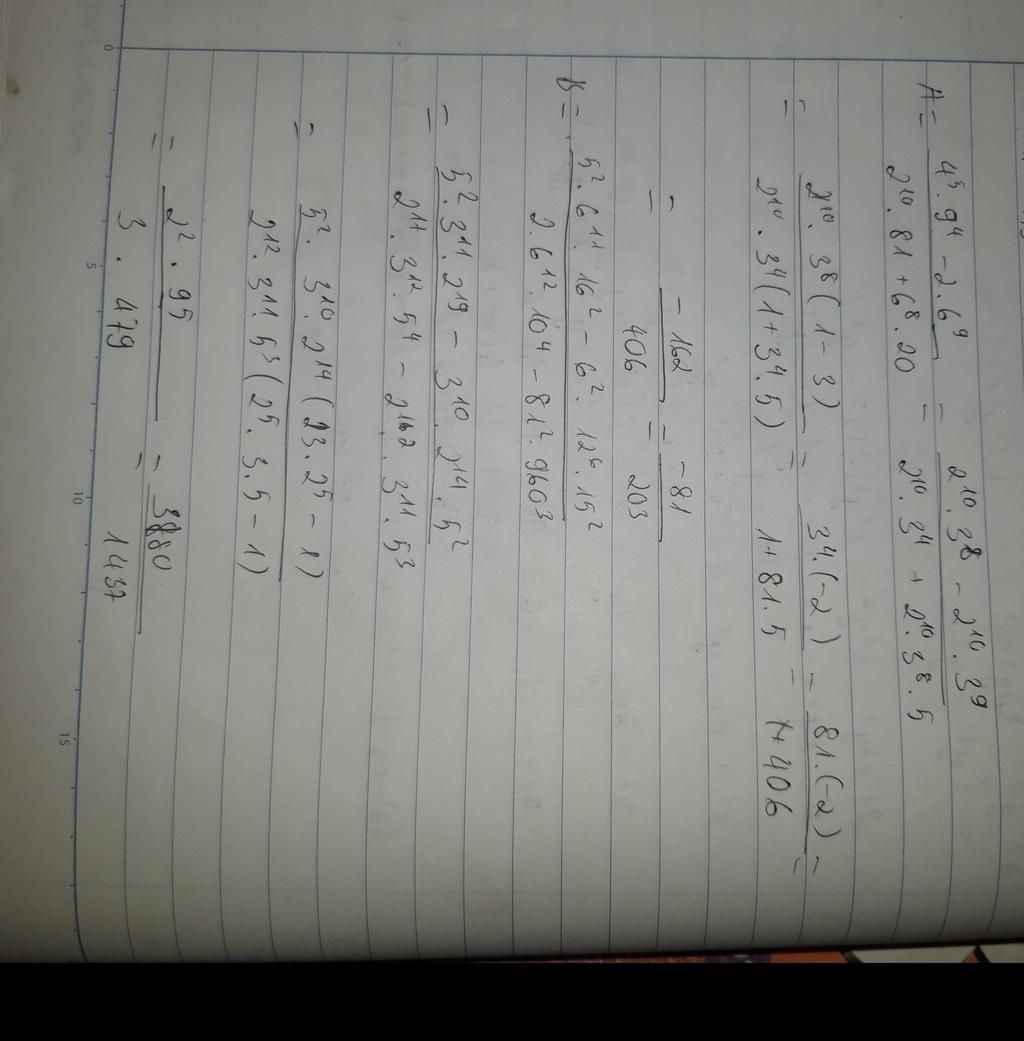 A = 4⁵.9⁴ - 2.6⁹ / 2¹⁰.81 + 6⁸.20 = 2¹⁰.3⁸ - 2¹⁰.3⁹ / 2¹⁰.3⁴ + 2¹⁰.3⁸.5
= 2¹⁰.3⁸(1-3) / 2¹⁰.3⁴(1+3⁴.5) = 3⁴.(-2) / 1+81.5 = 81.(-2) / 1+406 =
= -162 / 406 = -81 / 203
B = 5².6¹¹.16² - 6².12⁶.15² / 2.6¹².10⁴ - 81².960³
= 5².3¹¹.2¹⁹ - 3¹⁰.2¹⁴.5² / 2¹⁷.3¹².5⁴ - 2¹⁶².3¹¹.5³
= 5².3¹⁰.2¹⁴(23.2⁵-1) / 2¹².3¹¹.5³(2⁵.3.5-1)
= 2².95 / 3.479 = 3880 / 1437
0 5 10 15